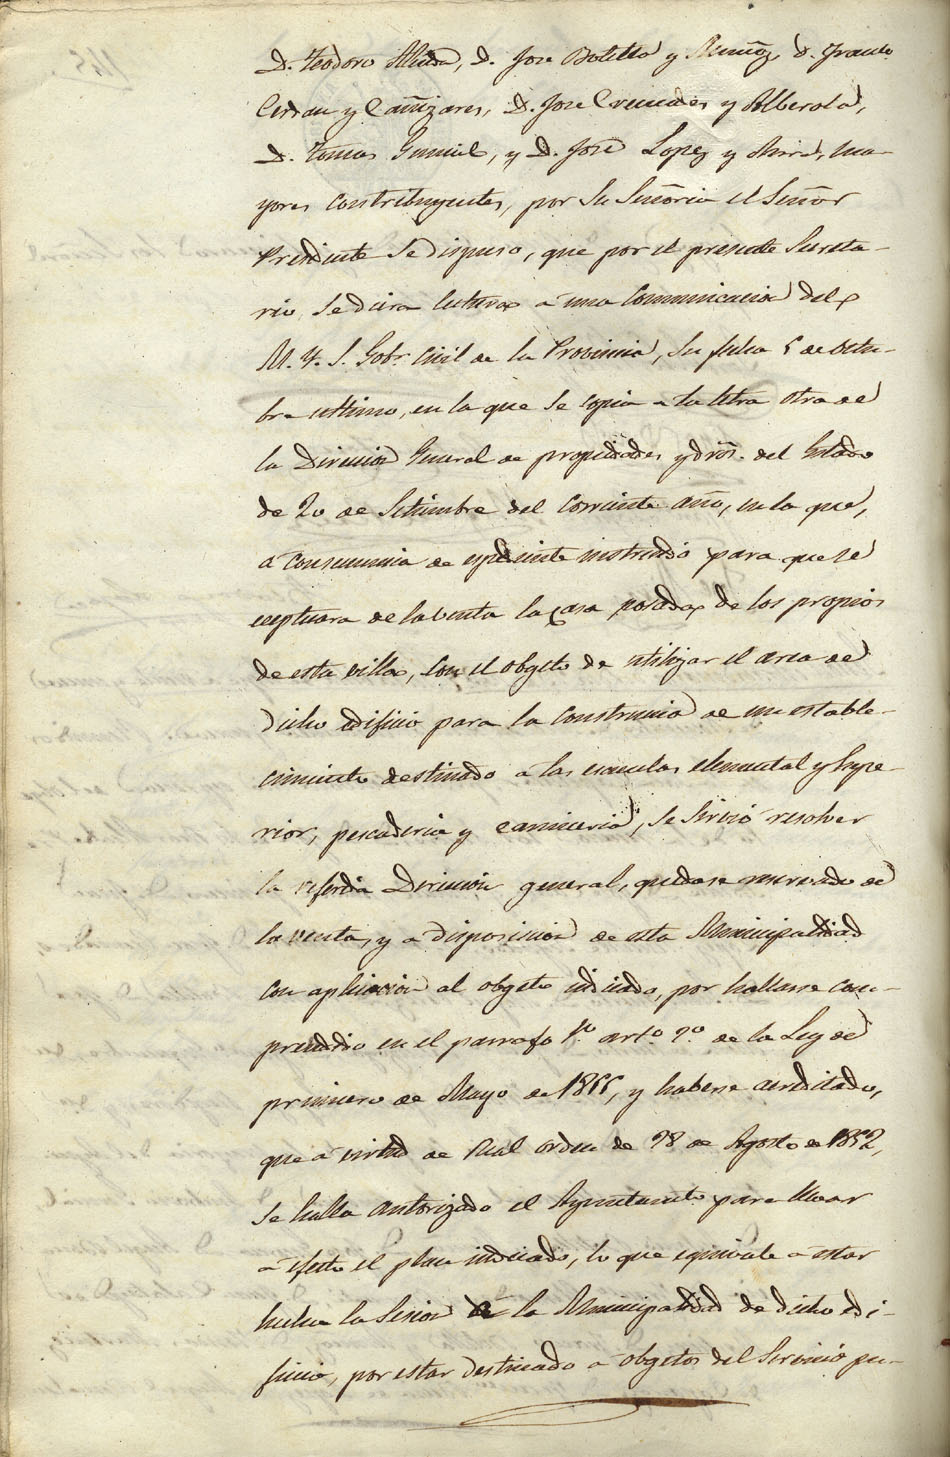 D. Teodoro Alenda, D. Jose Botella y Muñoz, D. Franco.
Cerdan y Cañizares, D. Jose Cremades y Alberola,
D. Tomas Gumiel, y D. José Lopez y Mira, ma-
yores contribuyentes, por Su Señoria el Señor
Presidente se dispuso, que por el presente Secreta-
rio se diera lectura á una Comunicacion del
M. Y. S. Gobr. Civil de la Provincia, su fecha 5 de Octu-
bre ultimo, en la que se copia a la letra otra de
la Direccion General de propiedades y dros. del Estado
de 20 de Setiembre del corriente año, en la que,
á consecuencia de espediente instruido para que se
eceptuara de la venta la casa posada de los propios
de esta villa, con el obgeto de utilizar el area de
dicho edificio para la construccion de un estable-
cimiento destinado á las escuelas elemental y supe-
rior, pescaderia y carniceria, se sirvió resolver
la referida Direccion general, quedase reservado de
la venta, y a disposicion de esta Municipalidad
con aplicacion al obgeto indicado, por hallarse com-
prendido en el parrafo 1º artº 2º de la Ley de
primero de Mayo de 1855, y haberse acreditado,
que á virtud de Real orden de 28 de Agosto de 1852,
se halla autorizado el Ayuntamiento para llevar
á efecto el plan indicado, lo que equivale á estar
hecha la cesion á la Municipalidad de dicho edi-
ficio, por estar destinado á obgetos del Servicio pu-